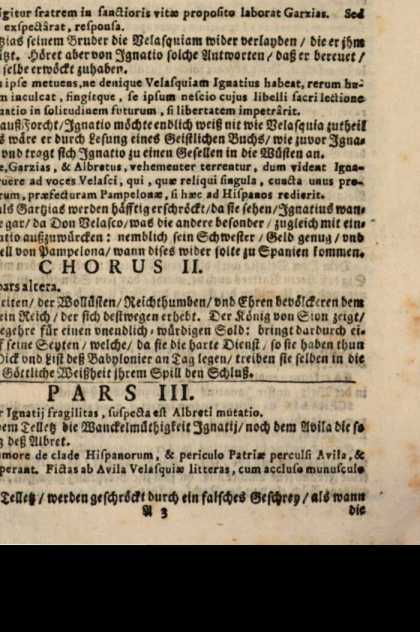 igitur fratrem in sanctioris vitæ proposito laborat Garzias. Sed
exspectârat, responsa.
zias seinem Bruder die Velasquiam wider verlanden / die er jhm
Höret aber von Ignatio solche Antworten / daß er bereuet /
selbe erwöckt zuhaben.
ipse metuens, ne denique Velasquiam Ignatius habeat, rerum hu-
inculcat, fingitque, se ipsum nescio cujus libelli sacri lectione
natio in solitudinem futurum, si libertatem impetrârit.
auß Forcht / Ignatio möchte endlich weiß nit wie Velasquia zutheil
wäre er durch Lesung eines Geistlichen Buchs / wie zuvor Igna-
vnd tragt sich Ignatio zu einen Gesellen in die Wüsten an.
Garzias, & Albretus, vehementer terrentur, dum vident Igna-
ruere ad voces Velasci, qui, quæ reliqui singula, cuncta unus pro-
rum, præfecturam Pampelonæ, si hac ad Hispanos redierit.
als Garzias werden häfftig erschröckt / da sie sehen / Ignatius wan-
gar / da Don Velasco / was die andere besonder / zugleich mit ein-
atio außzuwürcken: nemblich sein Schwester / Geld genug / vnd
ell von Pampelona / wann dises wider solte zu Spanien kommen.
CHORUS II.
pars altera.
citen / der Wollüsten / Reichthumben / vnd Ehren bevölckeren dem
ein Reich / der sich destwegen erhebt. Der König von Sion zeigt /
egehre für einen vnendlich-würdigen Sold: bringt dardurch ei-
f seine Seyten / welche / da sie die harte Dienst / so sie haben thun
Dick vnd List deß Babylonier an Tag legen / treiben sie selben in die
Göttliche Weißheit jhrem Spill den Schluß.
PARS III.
r Ignatij fragilitas, suspecta est Albreti mutatio.
dem Telletz die Wanckelmüthigkeit Ignatij / noch dem Avila die so
deß Albret.
umore de clade Hispanorum, & periculo Patriæ perculsi Avila, &
perant. Fictas ab Avila Velasquiæ litteras, cum accluso munusculo
Telletz / werden geschröckt durch ein falsches Geschrey / als wann
A 3
die